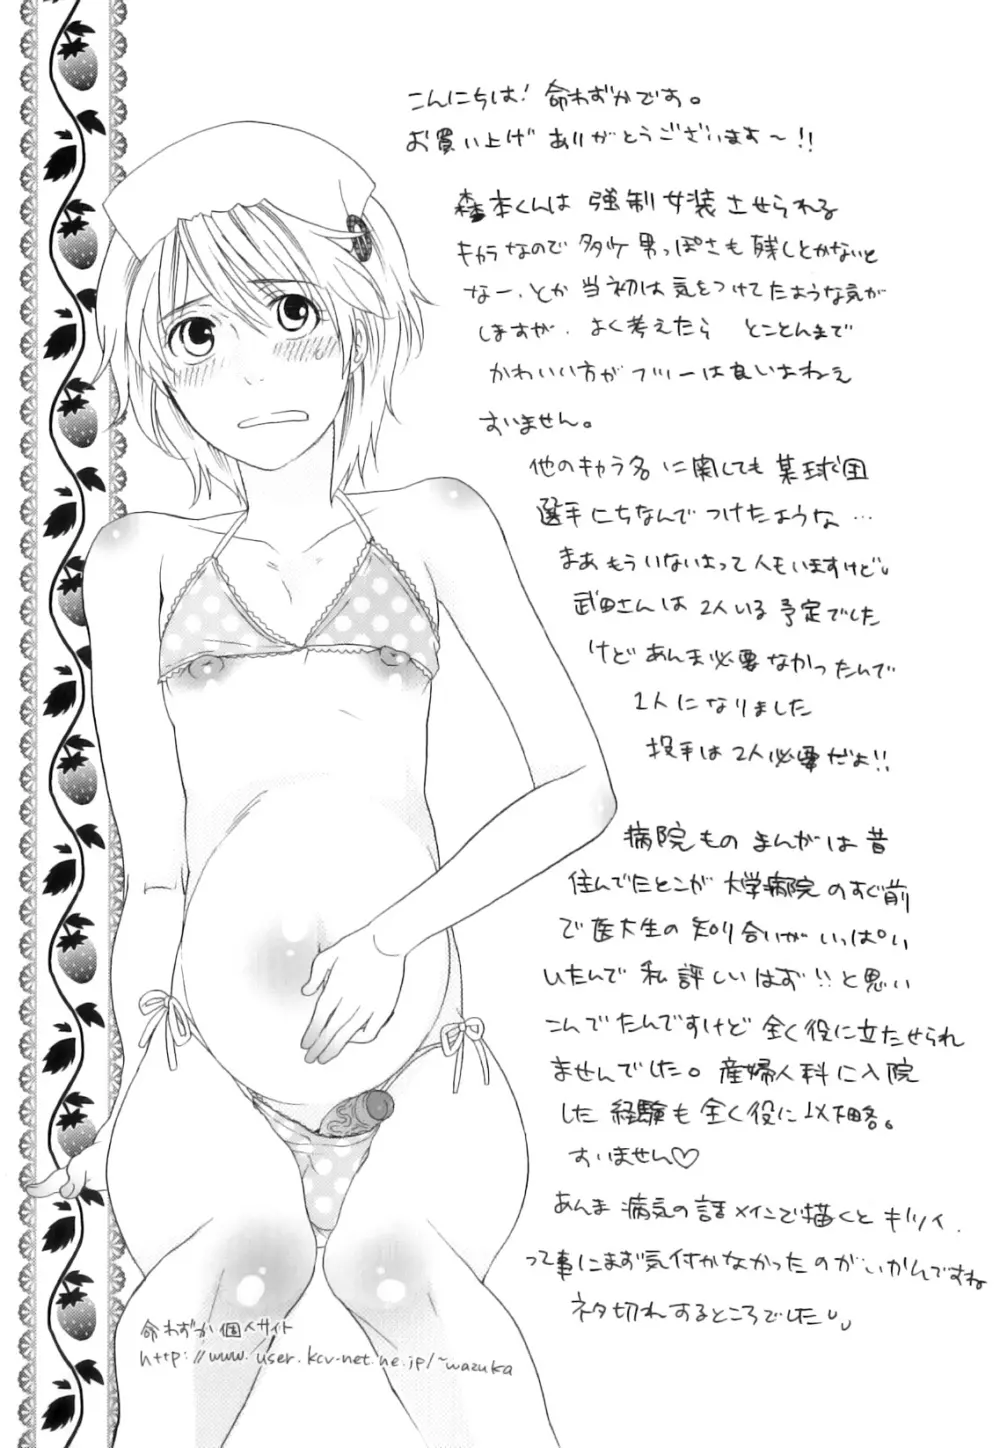 こんにちは! 命わずかです。
お買い上げ ありがとうございます〜!!
森本くんは 強制女装させられる
キャラなので 多少男っぽさも残しとかないと
なー、とか 当初は気をつけてたような気が
しますが、よく考えたら とことんまで
かわいい方が フツーは良いよねえ
すいません。
他のキャラ名に関しても某球団
選手にちなんでつけたような…
まあもういないよって人もいますけど
武田さんは2人いる予定でした
けどあんま必要なかったんで
1人になりました
投手は2人必要だよ!!
病院ものまんがは昔
住んでたとこが 大学病院のすぐ前
で医大生の知り合いがいっぱい
いたんで 私詳しいはず!!と思い
こんでたんですけど 全く役に立たせられ
ませんでした。産婦人科に入院
した経験も全く役に以下略。
すいません♡
あんま 病気の話メインで描くとキツイ、
って事にまず気付かなかったのがいかんですね
ネタ切れするところでした
命わずか個人サイト
http://www.user.kcv-net.ne.jp/~wazuka